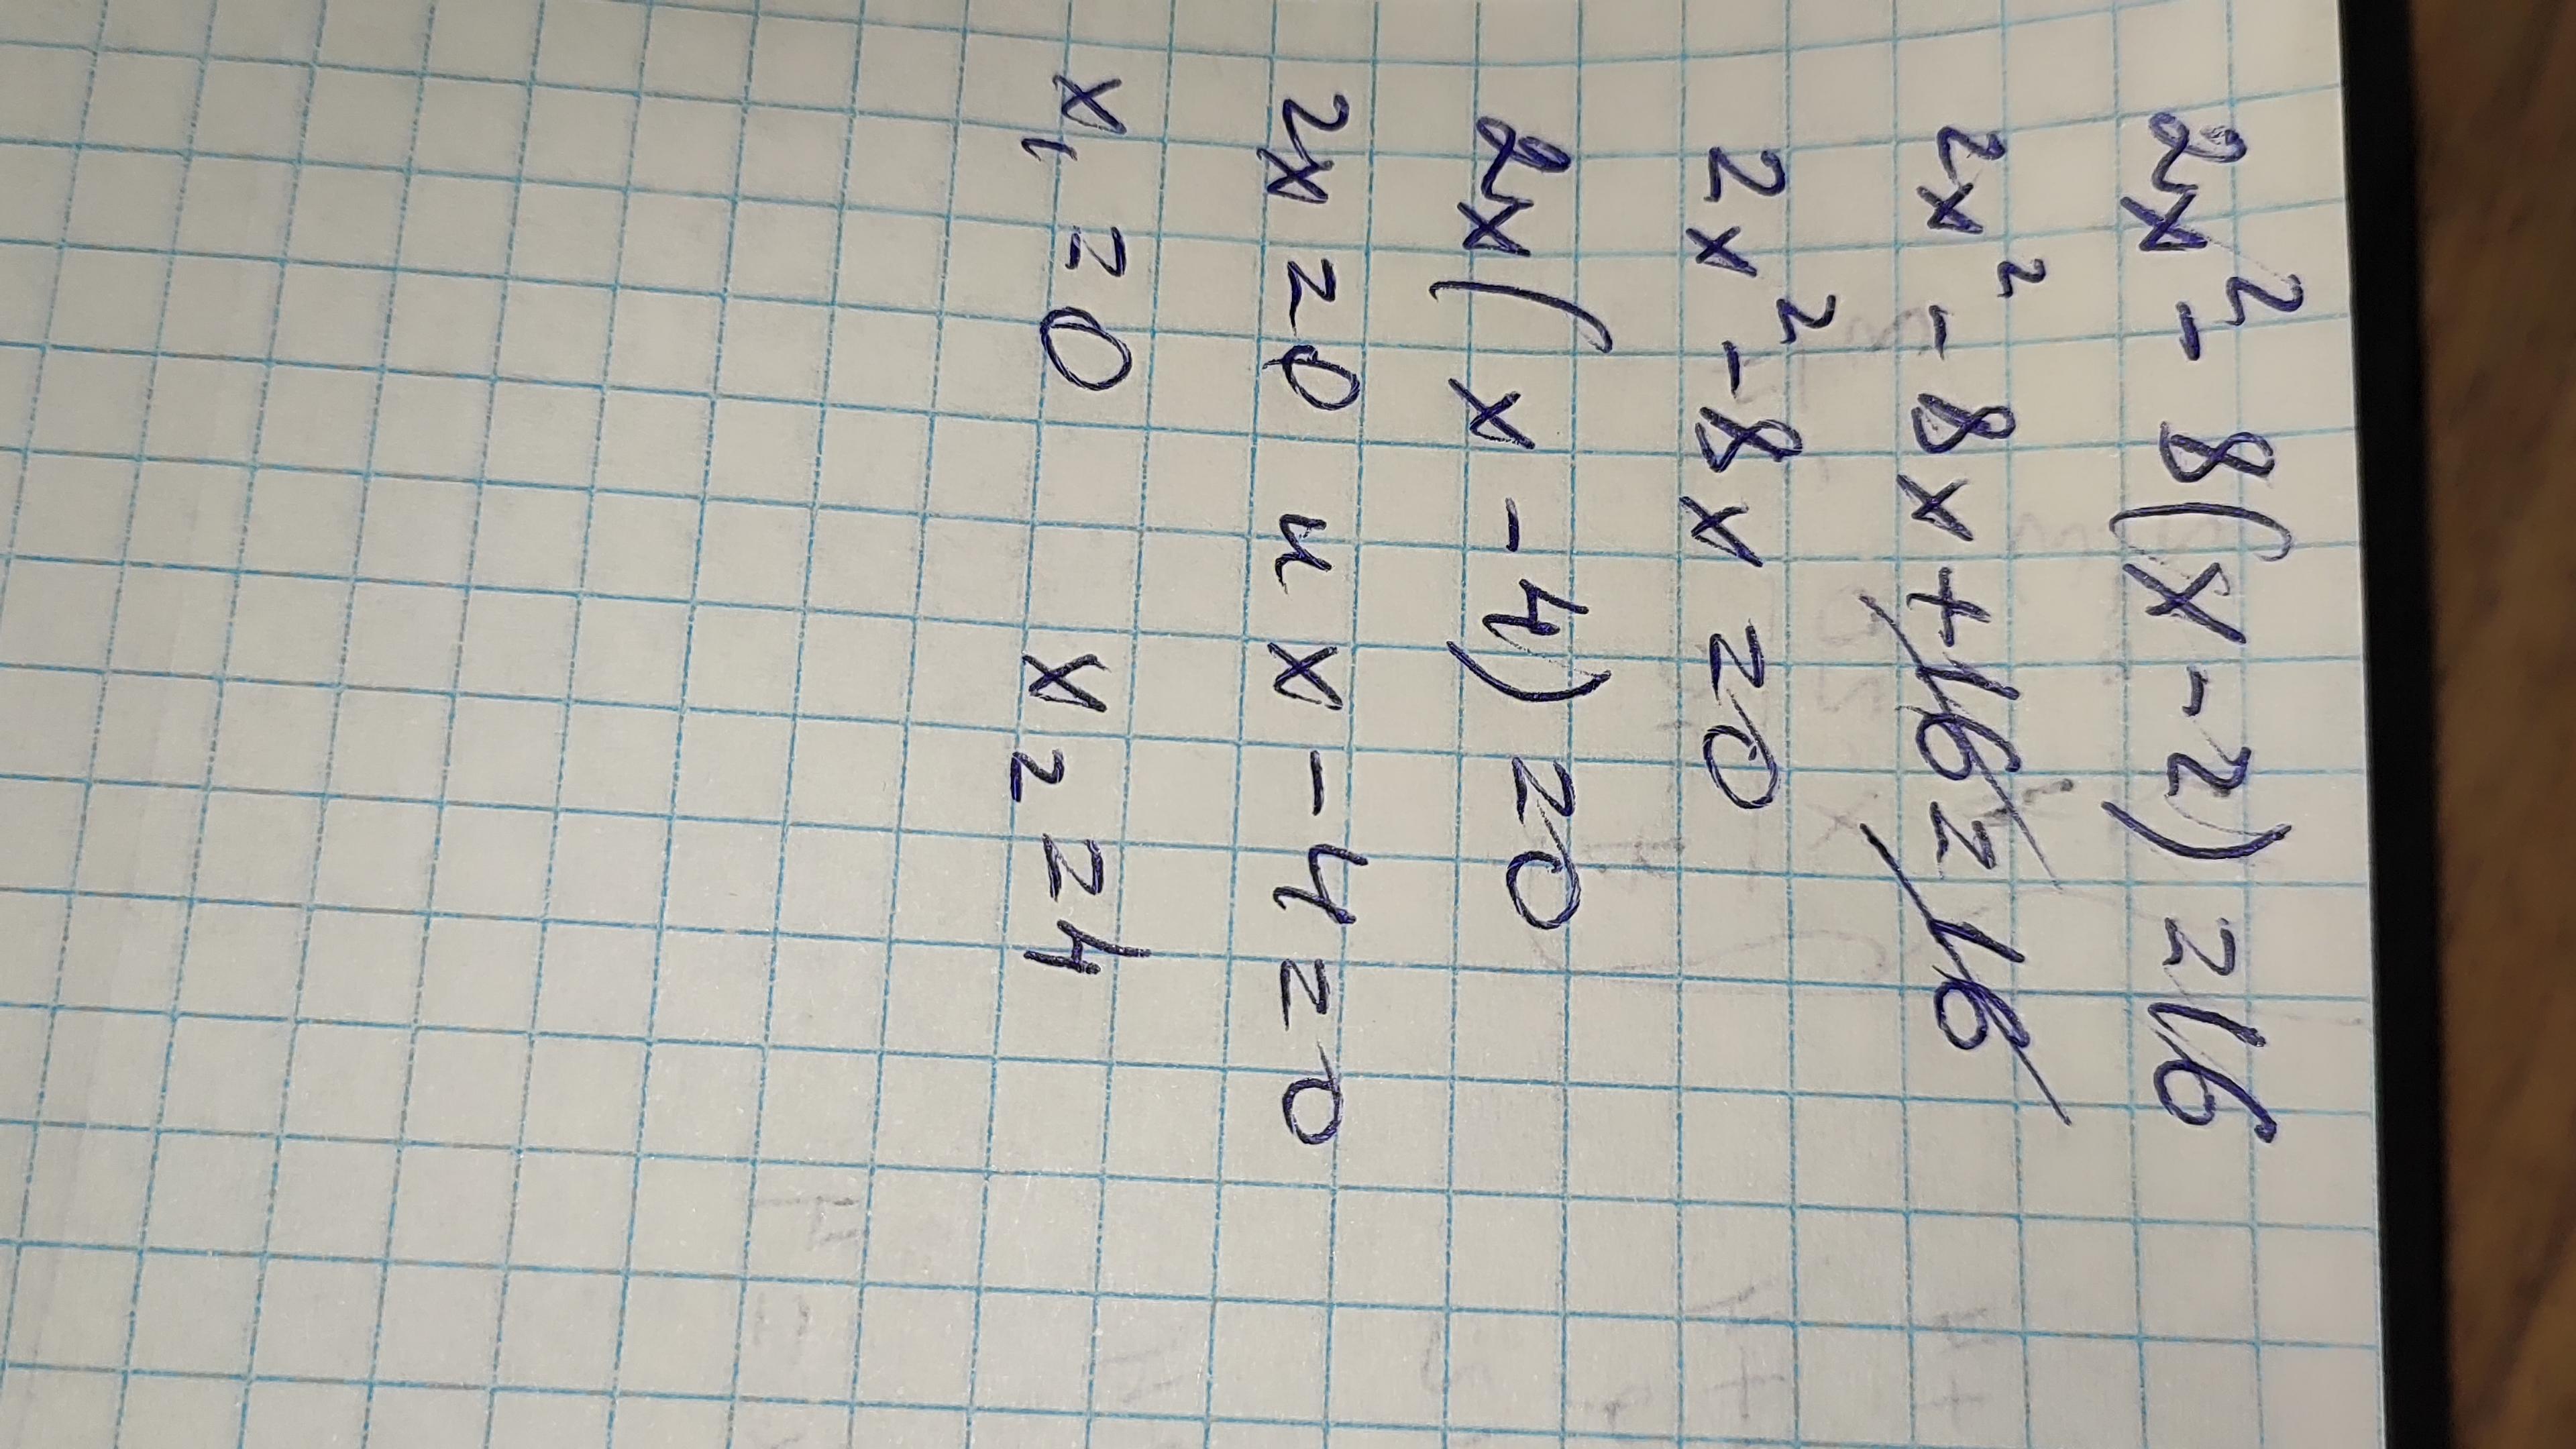 2x² - 8(x - 2) = 16
2x² - 8x + 16 = 16
2x² - 8x = 0
2x(x - 4) = 0
2x = 0 и x - 4 = 0
x₁ = 0 x₂ = 4